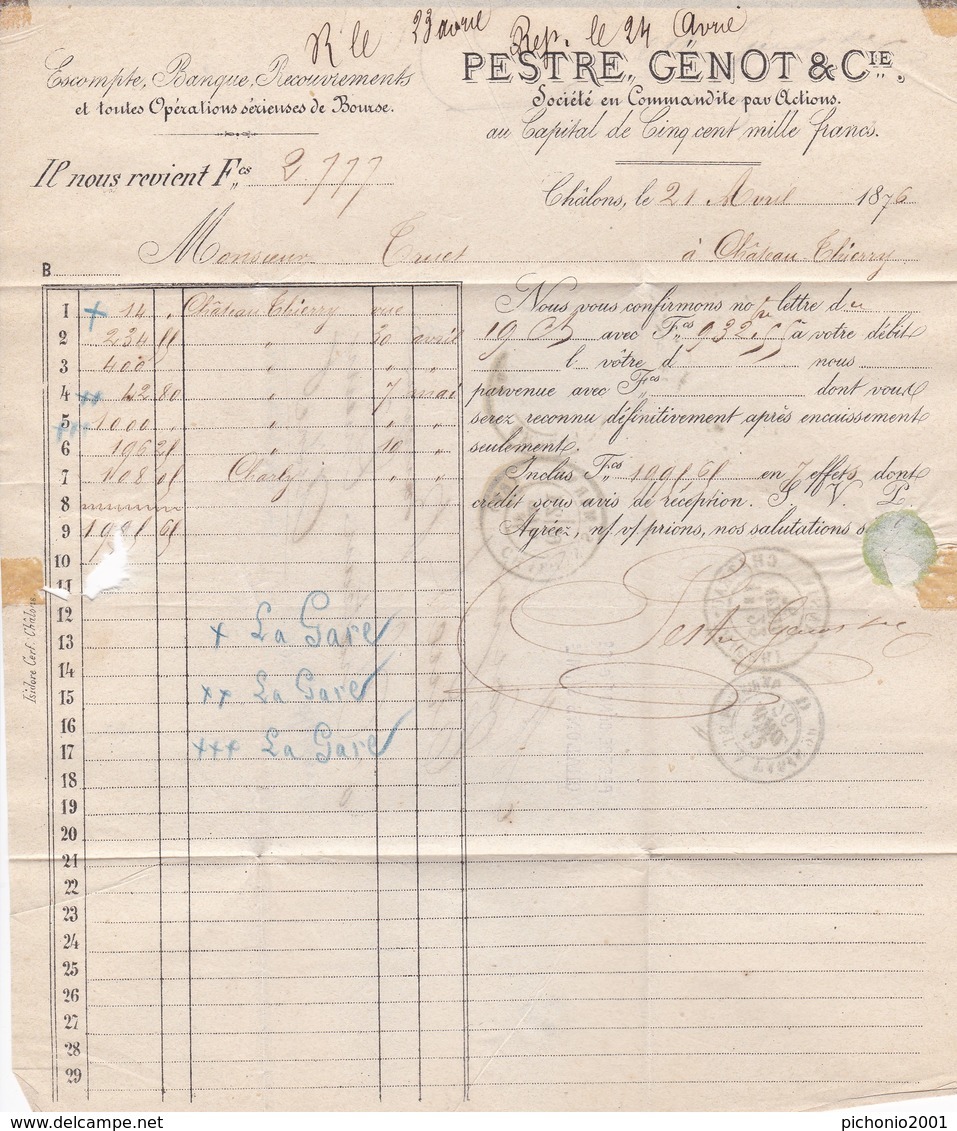 R le 23 avril Rep. le 24 Avril
Escompte, Banque, Recouvrements
et toutes Opérations sérieuses de Bourse.
PESTRE, GÉNOT & CIE.
Société en Commandite par Actions.
au Capital de Cinq cent mille francs.
Il nous revient Fcs 2.777
Châlons, le 21 Avril 1876
B Monsieur Truet à Château-Thierry
1 + 14 " Château Thierry vue
2 234 " 30 avril
3 400 " " "
4 ++ 42 80 " 7 mai
5 +++ 1000 " " " "
6 196 21 " 10 "
7 Charly " "
8
9
10
11
12
13
14
15
16
17
18
19
20
21
22
23
24
25
26
27
28
29
Nous vous confirmons no/ lettre du
19 Ct avec Fcs 932 à votre débit
l vôtre d nous
parvenue avec Fcs dont vous
serez reconnu définitivement après encaissement
seulement.
Inclus Fcs en 7 effets dont
crédit sous avis de réception. S. V. P.
Agréez, n/ v/ prions, nos salutations
+ La Gare
++ La Gare
+++ La Gare
Pestre Genot & Cie
Isidore Cerf. Châlons
pichonio2001